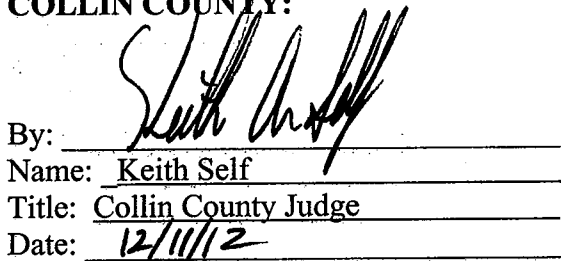 COLLIN COUNTY:
By: Keith A Self
Name: Keith Self
Title: Collin County Judge
Date: 12/11/12